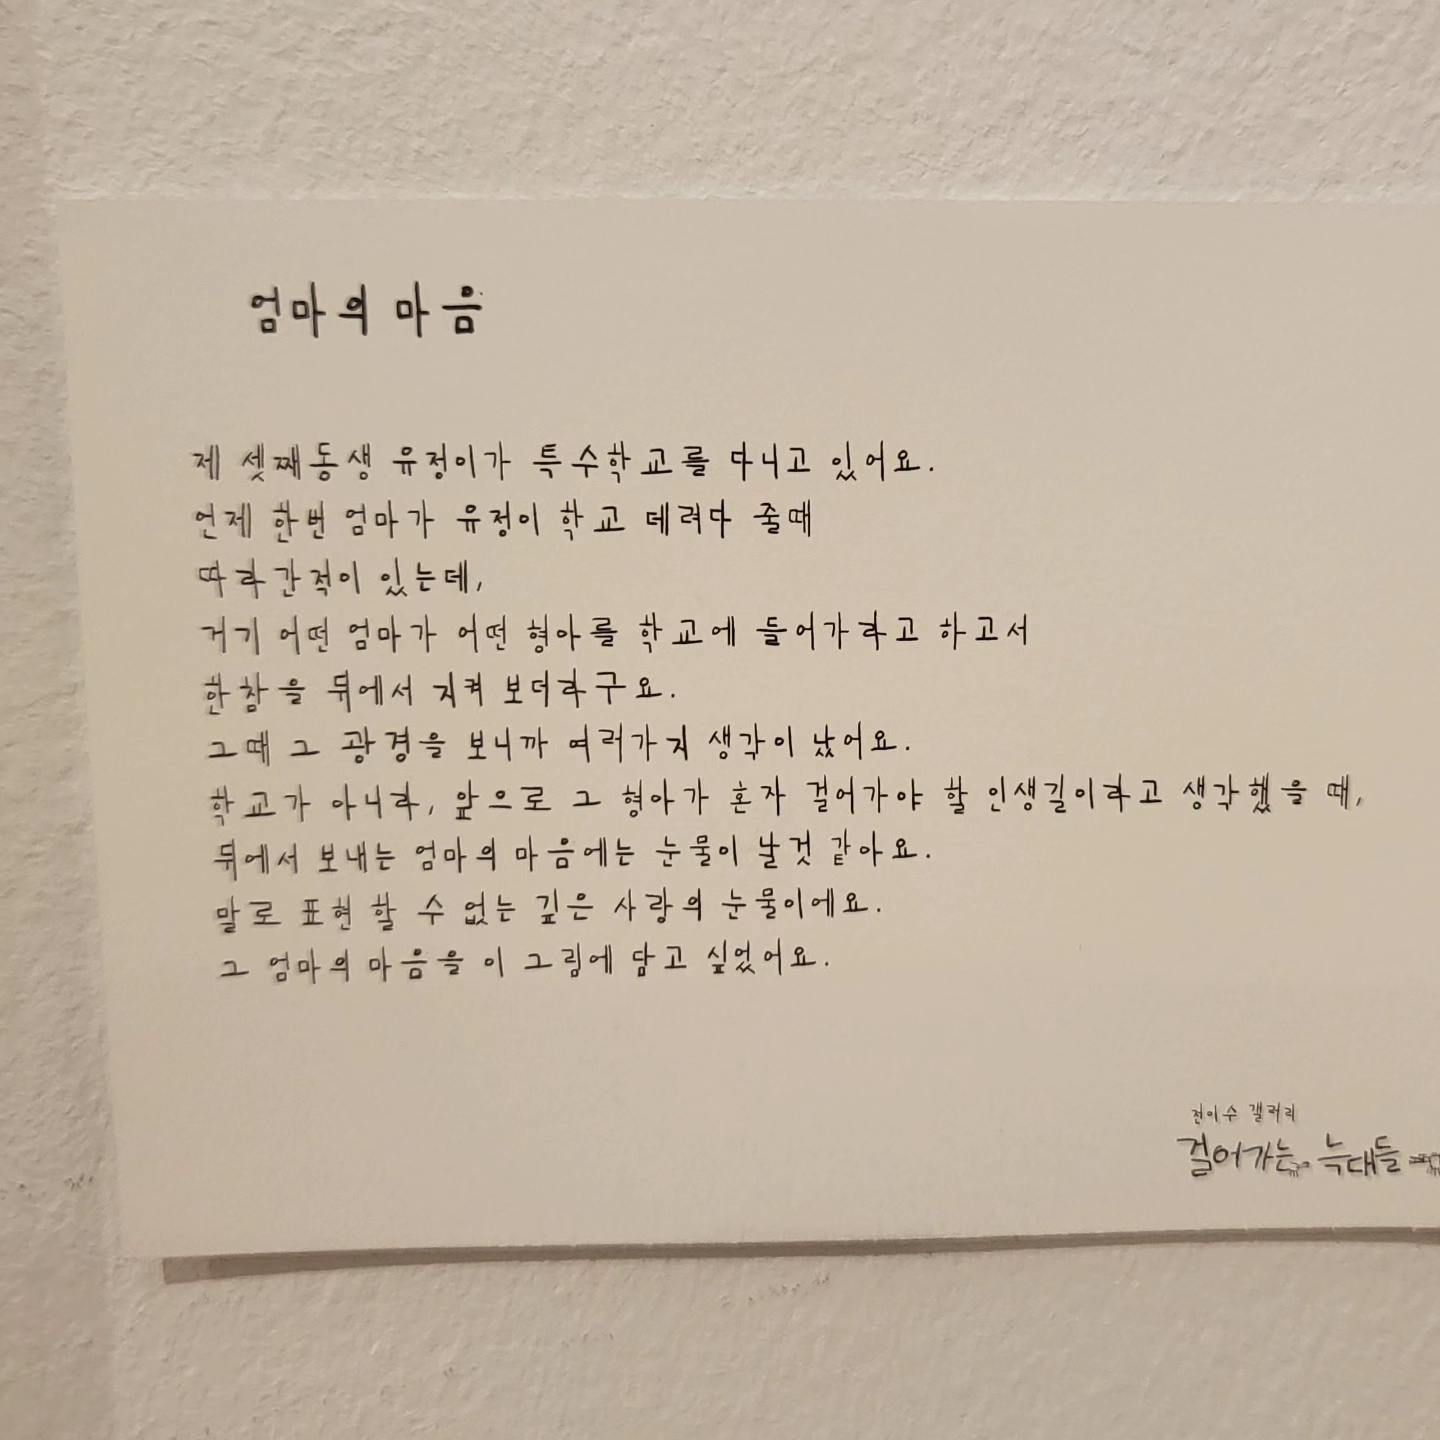 엄마의 마음
제 셋째동생 유정이가 특수학교를 다니고 있어요.
언제 한번 엄마가 유정이 학교 데려다 줄때
따라간적이 있는데,
거기 어떤 엄마가 어떤 형아를 학교에 들어가라고 하고서
한참을 뒤에서 지켜 보더라구요.
그때 그 광경을 보니까 여러가지 생각이 났어요.
학교가 아니라, 앞으로 그 형아가 혼자 걸어가야 할 인생길이라고 생각했을 때,
뒤에서 보내는 엄마의 마음에는 눈물이 날것 같아요.
말로 표현 할 수 없는 깊은 사랑의 눈물이에요.
그 엄마의 마음을 이 그림에 담고 싶었어요.
전이수 갤러리
걸어가는 늑대들